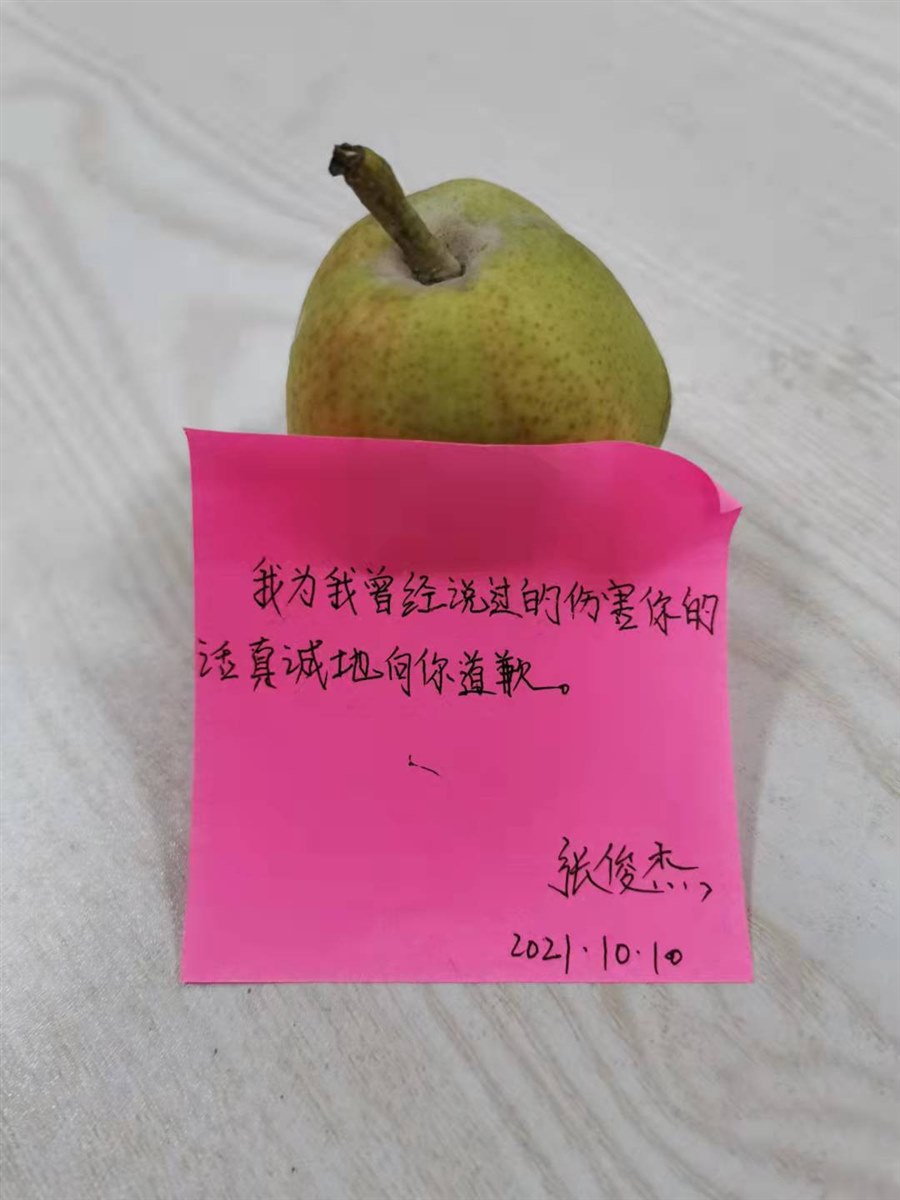 我为我曾经说过的伤害你的
话真诚地向你道歉。
张俊杰
2021.10.10